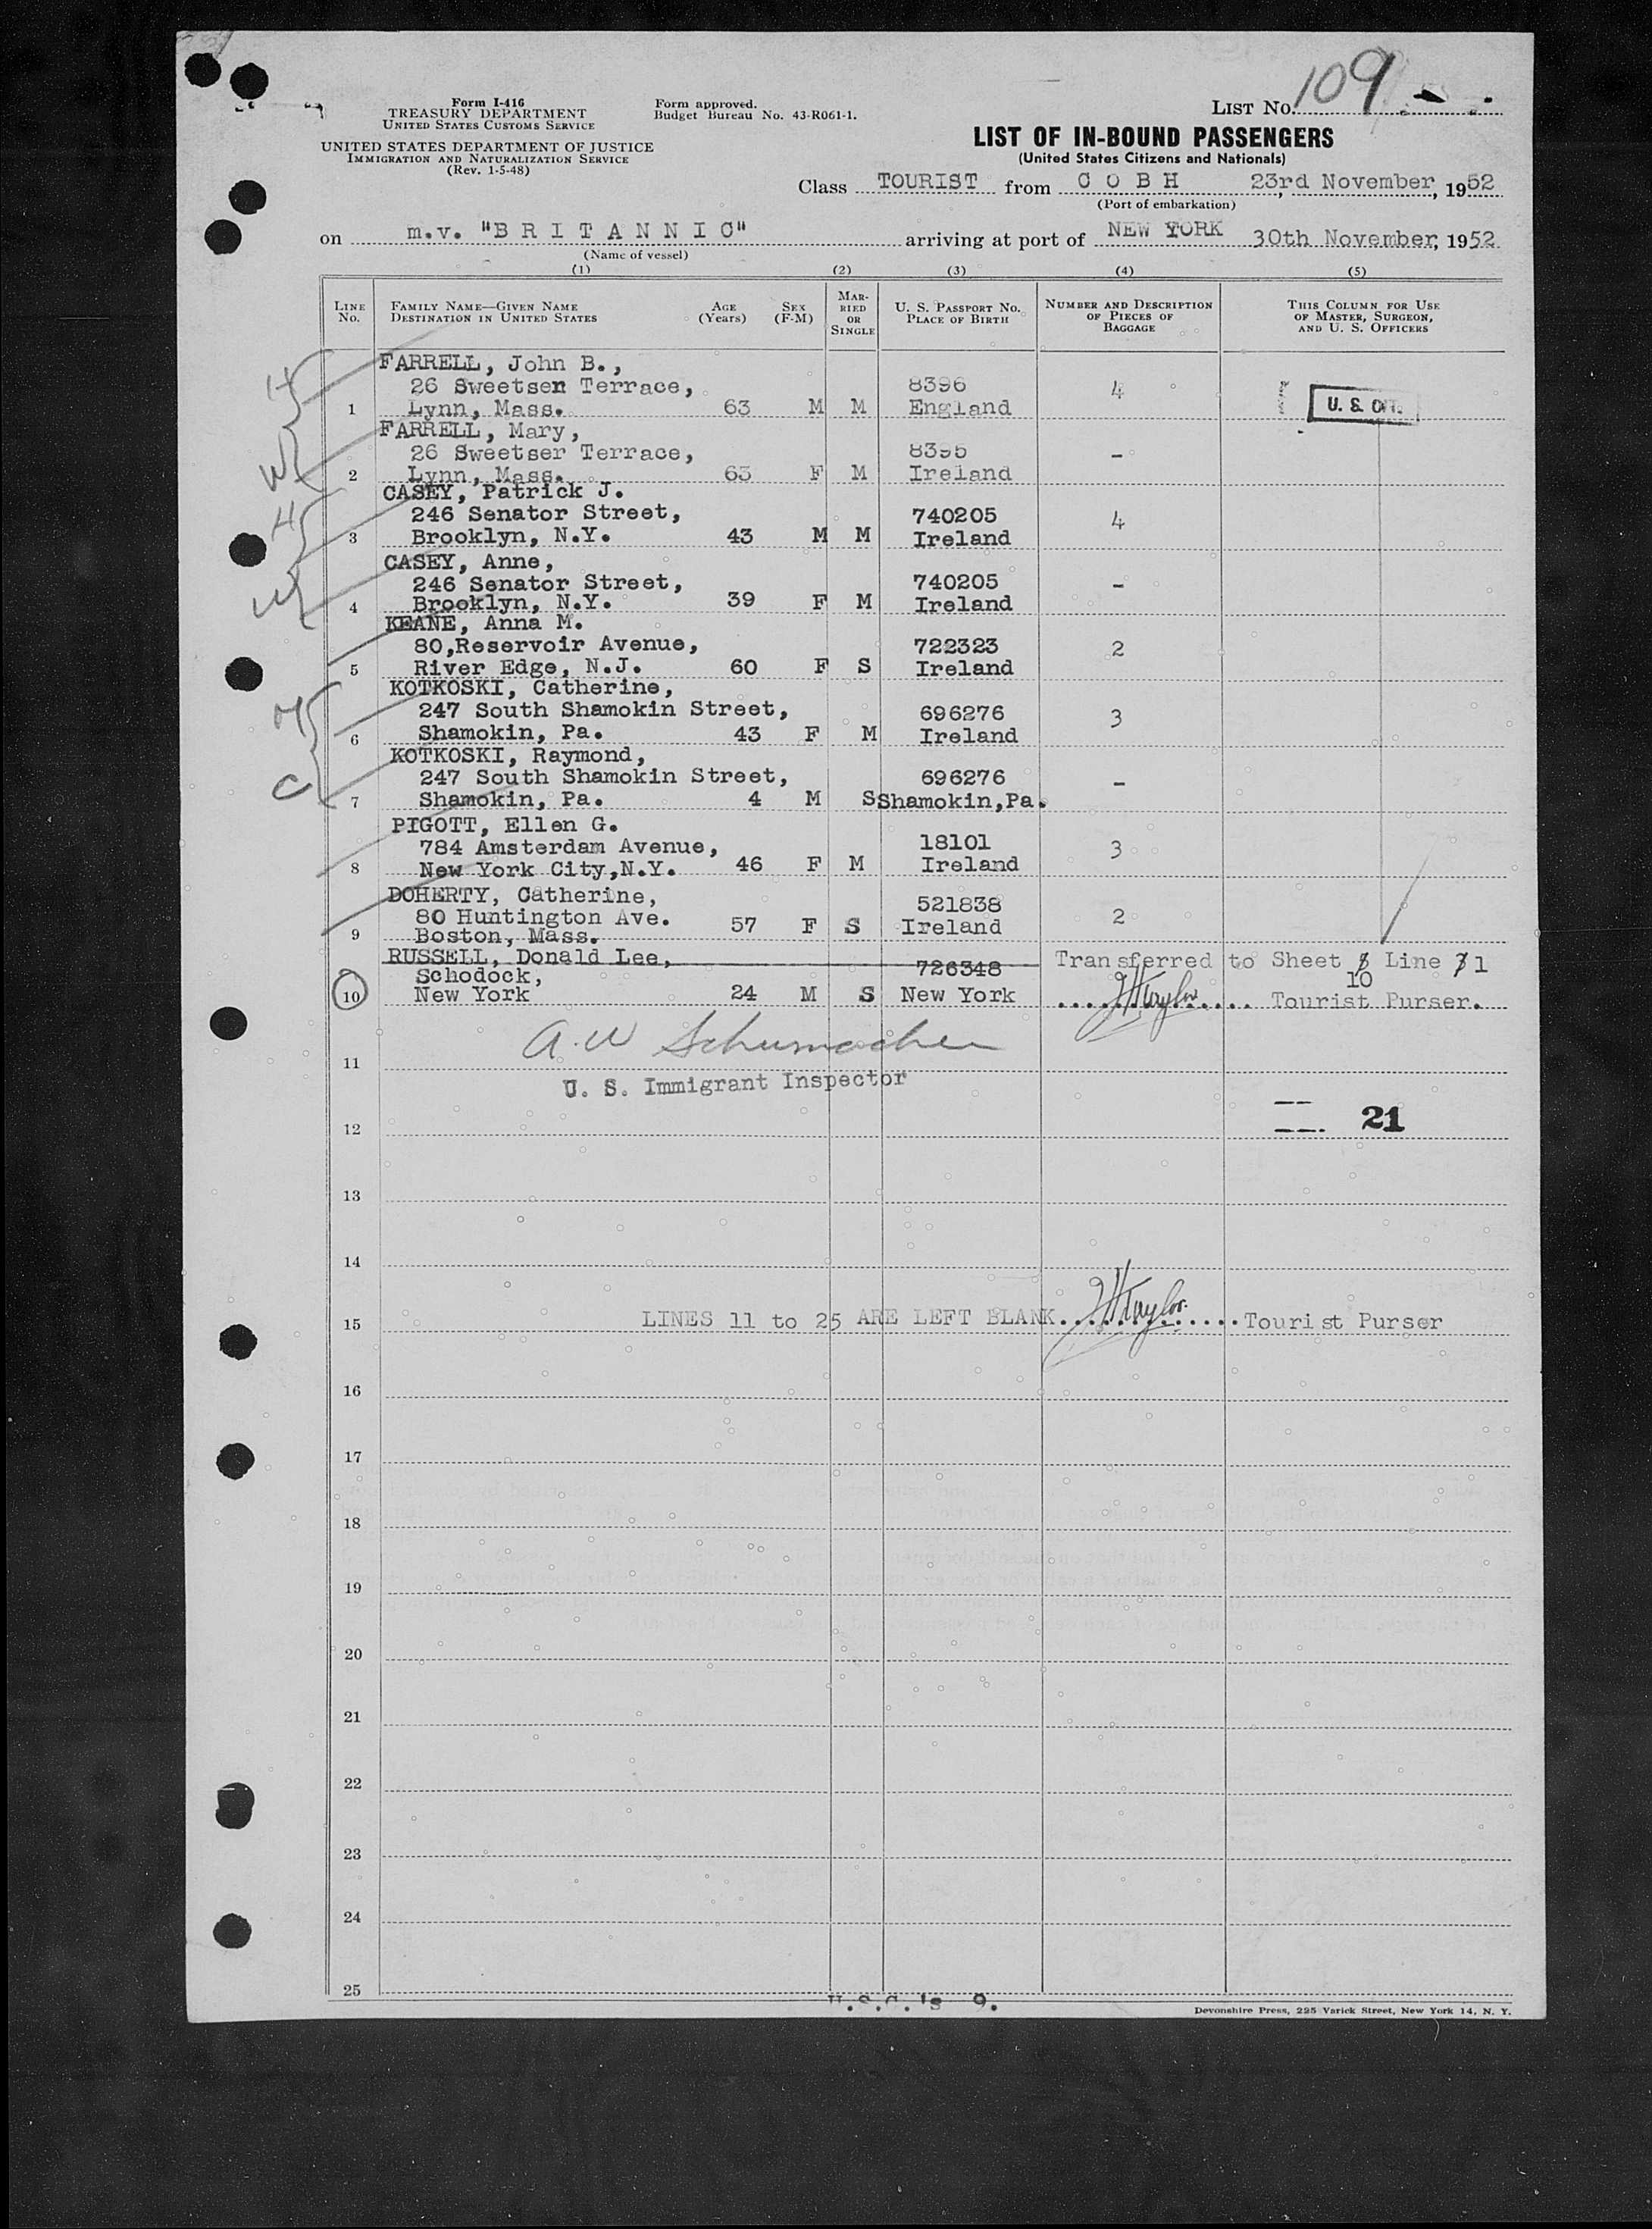 Form I-416
TREASURY DEPARTMENT
UNITED STATES CUSTOMS SERVICE
UNITED STATES DEPARTMENT OF JUSTICE
IMMIGRATION AND NATURALIZATION SERVICE
(Rev. 1-5-48)
Form approved.
Budget Bureau No. 43-R061-1.
LIST NO. 109
LIST OF IN-BOUND PASSENGERS
(United States Citizens and Nationals)
Class TOURIST from C O B H 23rd November, 1952
(Port of embarkation)
on m.v. "B R I T A N N I C" arriving at port of NEW YORK 30th November, 1952
(Name of vessel)
(1) (2) (3) (4) (5)
LINE NO. FAMILY NAME—GIVEN NAME DESTINATION IN UNITED STATES AGE (Years) SEX (F-M) MARRIED OR SINGLE U. S. PASSPORT NO. PLACE OF BIRTH NUMBER AND DESCRIPTION OF PIECES OF BAGGAGE THIS COLUMN FOR USE OF MASTER, SURGEON, AND U. S. OFFICERS
H FARRELL, John B.,
26 Sweetser Terrace, 8396 4
1 Lynn, Mass. 63 M M England U. S. CIT.
FARRELL, Mary,
W 26 Sweetser Terrace, 8395 -
2 Lynn, Mass. 63 F M Ireland
CASEY, Patrick J.
H 246 Senator Street, 740205 4
3 Brooklyn, N.Y. 43 M M Ireland
CASEY, Anne,
W 246 Senator Street, 740205 -
4 Brooklyn, N.Y. 39 F M Ireland
KEANE, Anna M.
80,Reservoir Avenue, 722323 2
5 River Edge, N.J. 60 F S Ireland
KOTKOSKI, Catherine,
M 247 South Shamokin Street, 696276 3
6 Shamokin, Pa. 43 F M Ireland
KOTKOSKI, Raymond,
C 247 South Shamokin Street, 696276 -
7 Shamokin, Pa. 4 M S Shamokin,Pa.
PIGOTT, Ellen G.
784 Amsterdam Avenue, 18101 3
8 New York City,N.Y. 46 F M Ireland
DOHERTY, Catherine, 521838
80 Huntington Ave. 57 F S Ireland 2
9 Boston, Mass.
RUSSELL, Donald Lee, 726348 Transferred to Sheet 10 Line 1
Schodock,
10 New York 24 M S New York JHTaylor Tourist Purser.
A. W Schumacher
11
U. S. Immigrant Inspector
21
12
13
14
15 LINES 11 to 25 ARE LEFT BLANK JHTaylor. Tourist Purser
16
17
18
19
20
21
22
23
24
25
U.S.C.'s 9.
Devonshire Press, 225 Varick Street, New York 14, N. Y.